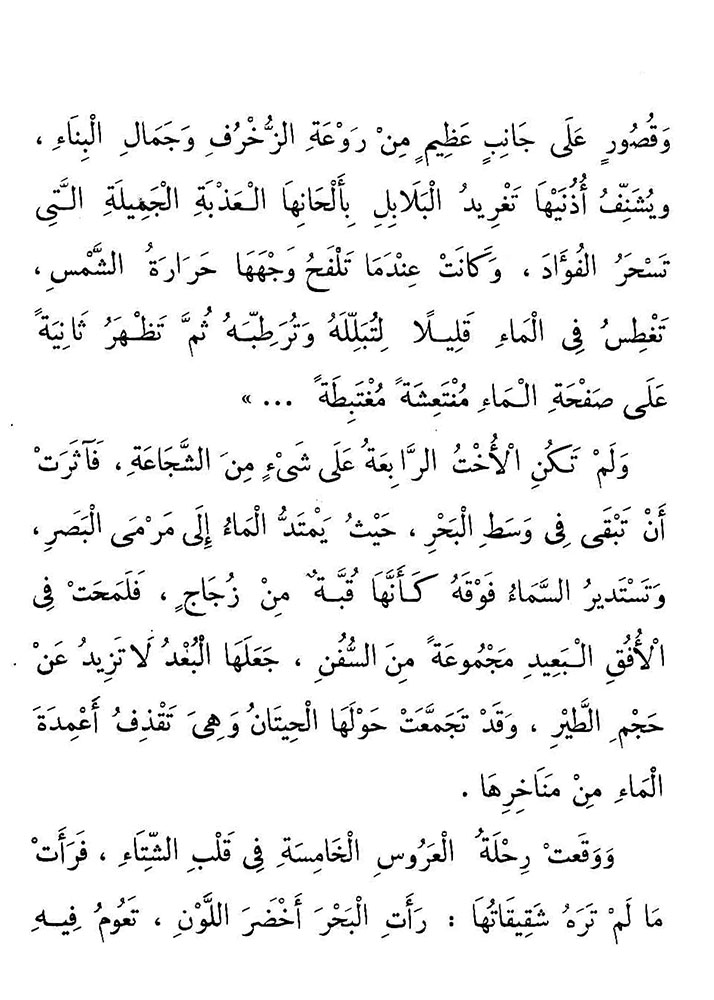 وَقُصُورٍ عَلَى جَانِبٍ عَظِيمٍ مِنْ رَوْعَةِ الزُّخْرُفِ وَجَمَالِ الْبِنَاءِ ،
ويُشَنِّفُ أُذُنَيْهَا تَغْرِيدُ الْبَلَابِلِ بِأَلْحَانِهَا الْعَذْبَةِ الْجَمِيلَةِ الَّتِى
تَسْحَرُ الفُؤَادَ ، وَكَانَتْ عِنْدَمَا تَلْفَحُ وَجْهَهَا حَرَارَةُ الشَّمْسِ ،
تَغْطِسُ فِى الْمَاءِ قَلِيلًا لِتُبَلِّلَهُ وَتُرَطِّبَهُ ثُمَّ تَظْهَرُ ثَانِيَةً
عَلَى صَفْحَةِ الْمَاءِ مُنْتَعِشَةً مُغْتَبِطَةً ... »
وَلَمْ تَكُنِ الْأُخْتُ الرَّابِعَةُ عَلَى شَىْءٍ مِنَ الشَّجَاعَةِ ، فَآثَرَتْ
أَنْ تَبْقَى فِى وَسَطِ الْبَحْرِ ، حَيْثُ يَمْتَدُّ الْمَاءُ إِلَى مَرْمَى الْبَصَرِ ،
وَتَسْتَدِيرُ السَّمَاءُ فَوْقَهُ كَأَنَّهَا قُبَّةٌ مِنْ زُجَاجٍ ، فَلَمَحَتْ فِى
الْأُفُقِ الْبَعِيدِ مَجْمُوعَةً مِنَ السُّفُنِ ، جَعَلَهَا الْبُعْدُ لَا تَزِيدُ عَنْ
حَجْمِ الطَّيْرِ ، وَقَدْ تَجَمَّعَتْ حَوْلَهَا الْحِيتَانُ وَهِىَ تَقْذِفُ أَعْمِدَةَ
الْمَاءِ مِنْ مَنَاخِرِهَا .
وَوَقَعَتْ رِحْلَةُ الْعَرُوسِ الْخَامِسَةِ فِى قَلْبِ الشِّتَاءِ ، فَرَأَتْ
مَا لَمْ تَرَهُ شَقِيقَاتُهَا : رَأَتِ الْبَحْرَ أَخْضَرَ اللَّوْنِ ، تَعُومُ فِيهِ